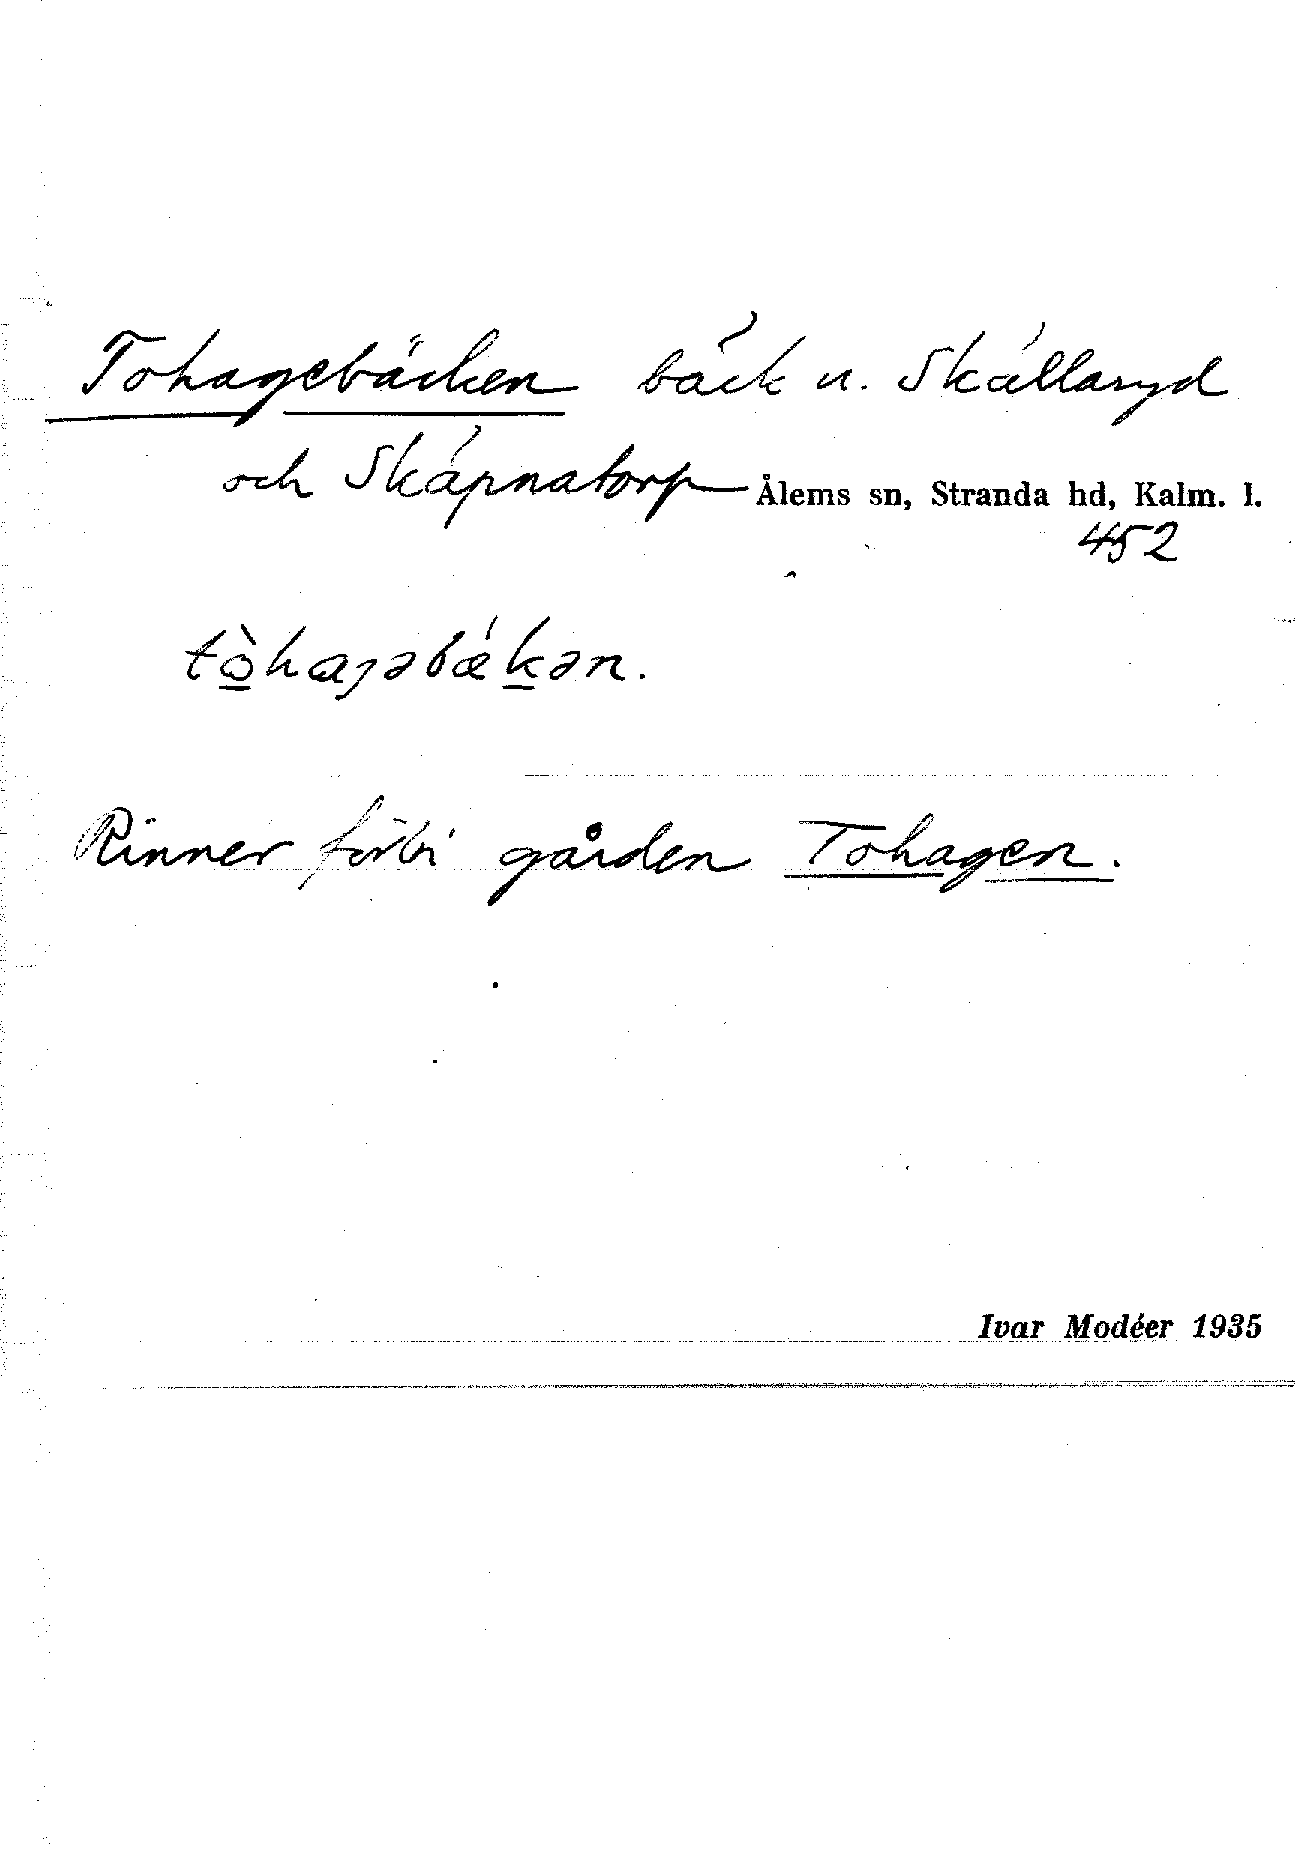 Tohagebäcken bäck n. Skällaryd
och Skäpnatorp Ålems sn, Stranda hd, Kalm. l.
452
Rinner förbi gården Tohagen.
Ivar Modéer 1935